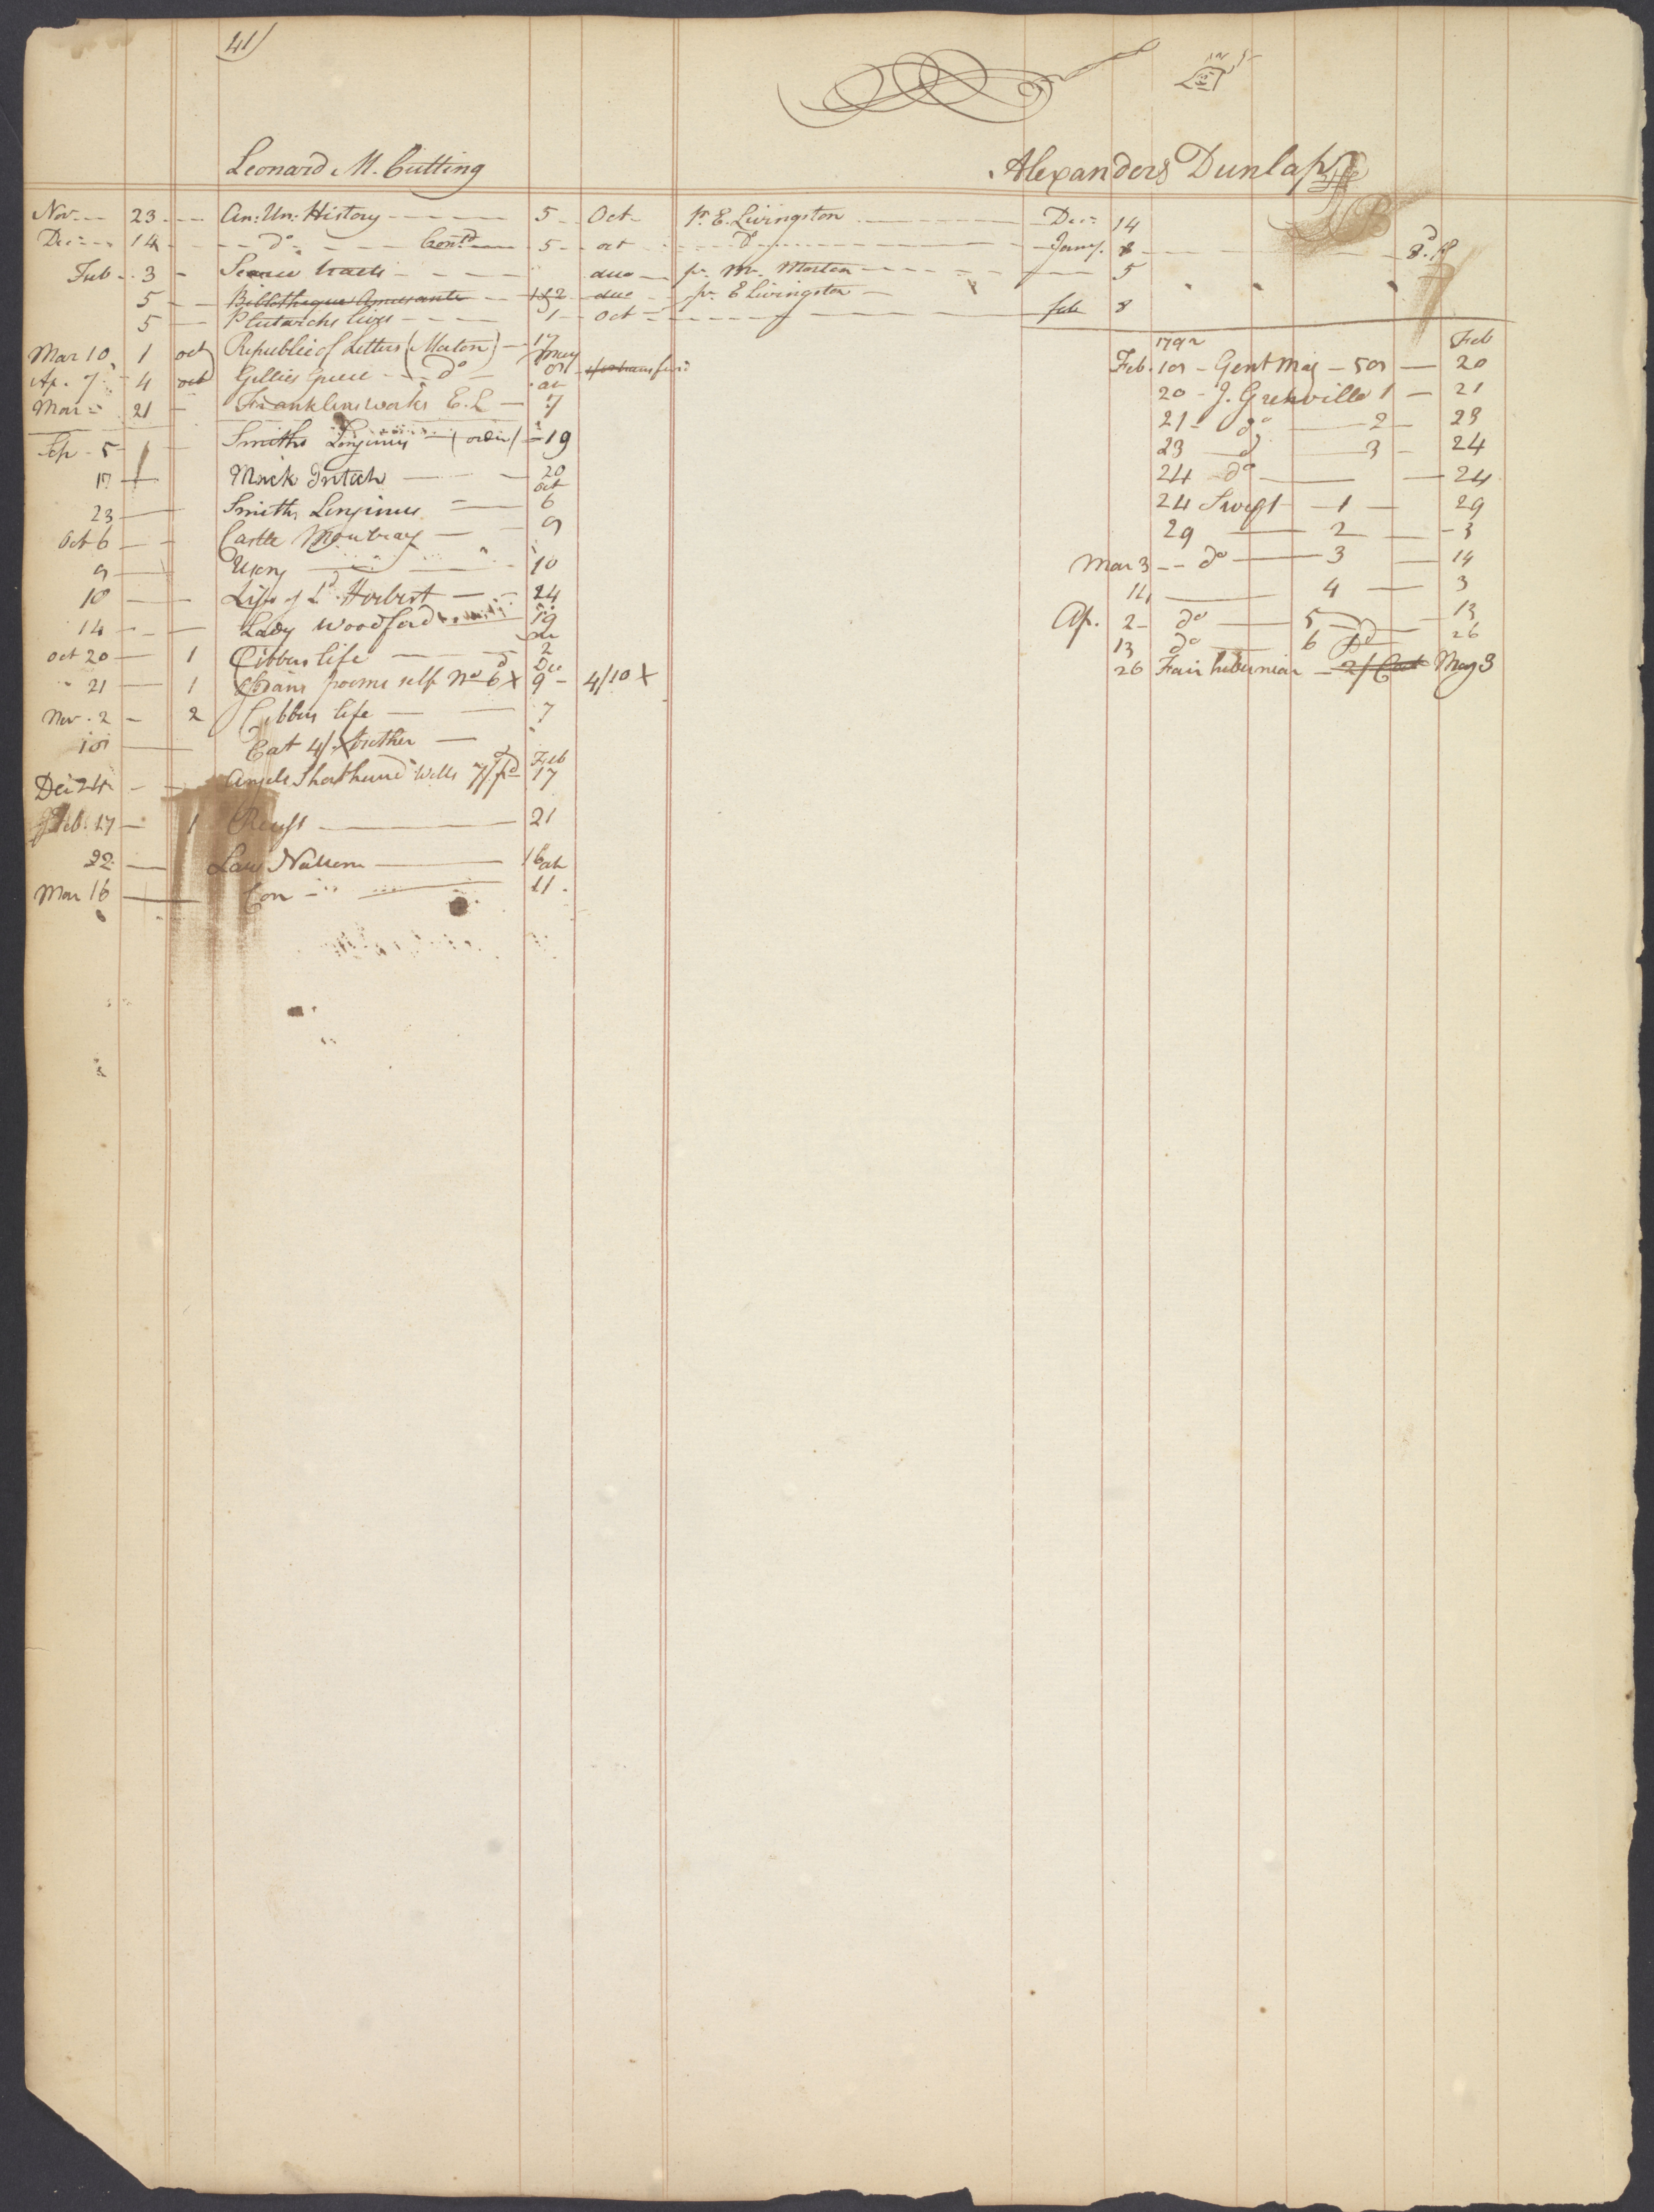 41
Leonard M. Cutting
Nov 23 An: Un: History 5 Oct pr. E. Livingston Dec: 14
Dec: 14 do Cont'd 5 oct do Jany. 8
Feb 3 duo pr. Mr. Morton 5
5 Bibliotheque Amusante 1 & 2 duo pr. E Livingston
5 Plutarchs lives 1 Oct feb 8
Mar 10 1 oct Republic of Letters (Morton) 17
Ap. 7 4 oct Gillies Greece do
Mar 21 Franklins works E. L 7
Sep 5 1 Smiths Longinus (order) 19
17 20
oct
23 Smiths Longinus 6
Oct 6 Castle Mowbray 9
9 10
10 Life of Ld. Herbert 24
14 Lady Woodford 19
Oct 20 1 Cibbers life 2
Dec
21 1 poems self No 6 X 9 4/10 X
Nov. 2 2 Cibbers life 7
Cat 4/
Feb
Dec 24 7/ pd 17
Feb. 17 1 21
22 Law Nations 16
Mar 16 Con 11
Alexanders Dunlap
1792 Feb
Feb. Gent Mag 20
20 J. Grenville 1 21
21 do 2 23
23 do 3 24
24 do 24
24 Swift 1 29
29 2 3
Mar 3 do 3 14
14 4 3
Ap. 2 do 5 13
13 do 6 pd 26
26 Fair hibernian 2/ Cut May 3